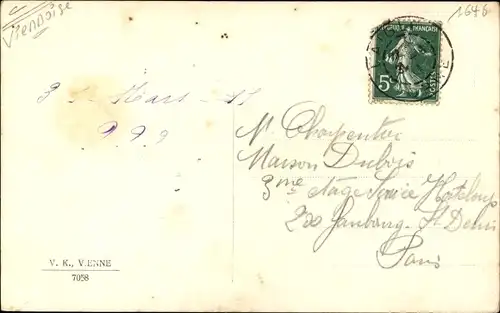 Viennoise
1646
RÉPUBLIQUE FRANÇAISE
5c
POSTES
Mr Charpentier
Maison Dubois
3me étage
220 Faubourg St Denis
Paris
V. K., VIENNE
7058